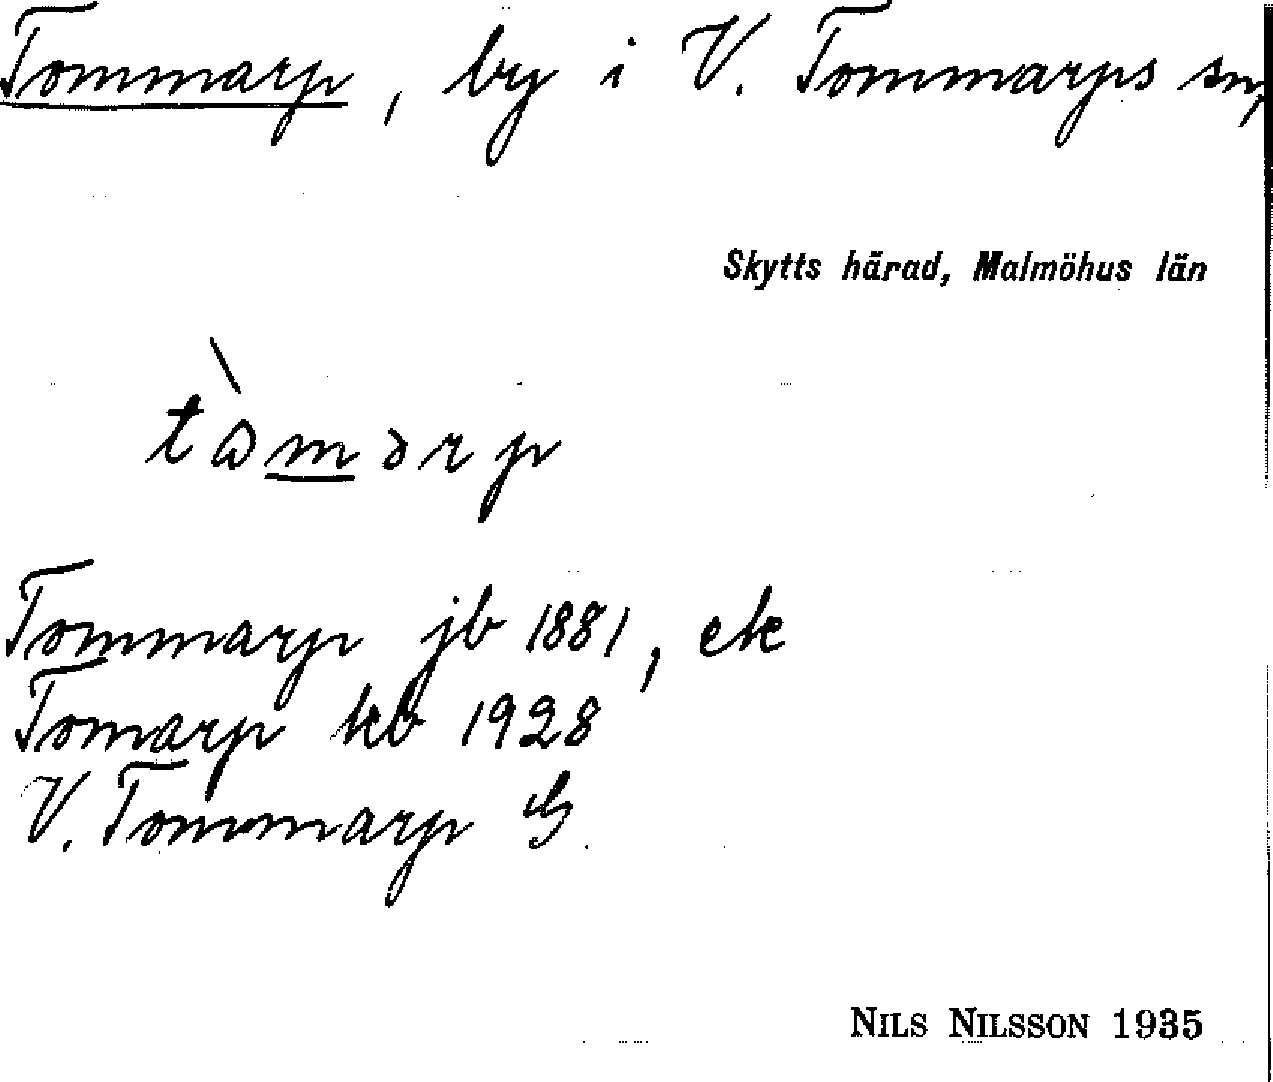 Tommarp, by i V. Tommarps sn,
Skytts härad, Malmöhus län
tɷ̀mərp
Tommarp jb 1881, ek
Tomarp kb 1928
V. Tommarp G.
NILS NILSSON 1935